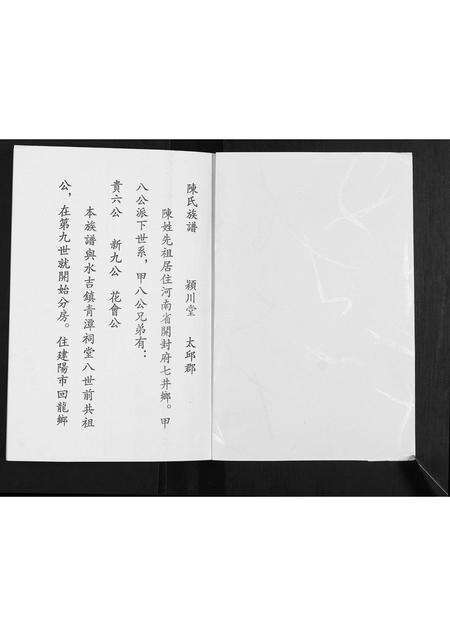 陳氏族譜　潁川堂　太邱郡
陳姓先祖居住河南省開封府七井鄉。甲
八公派下世系，甲八公兄弟有：
貴六公　新九公　花會公
本族譜與水吉鎮青潭祠堂八世前共祖
公，在第九世就開始分房。住建陽市回龍鄉